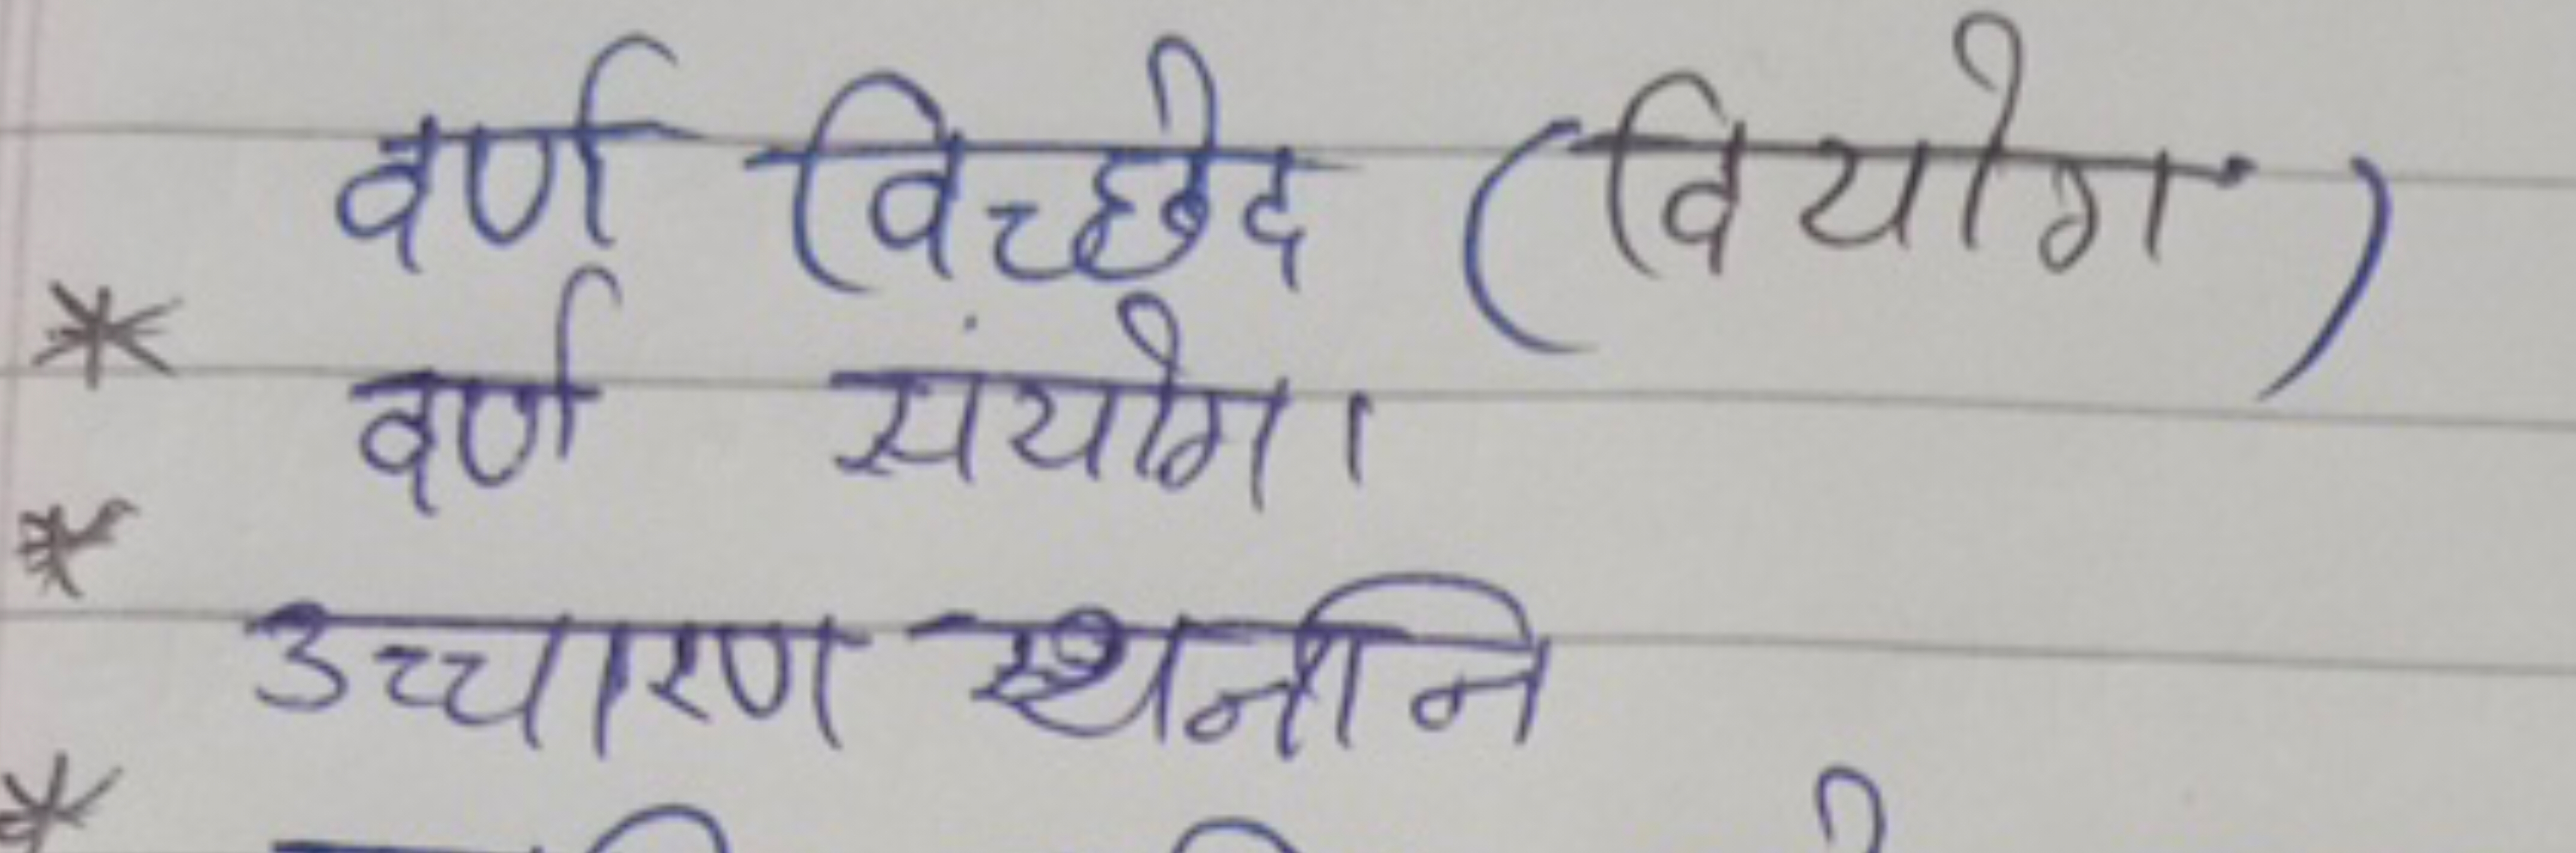 वर्ण विच्छेद (वियोग)
* वर्ण संयोग।
* उच्चारण स्थनानि
*